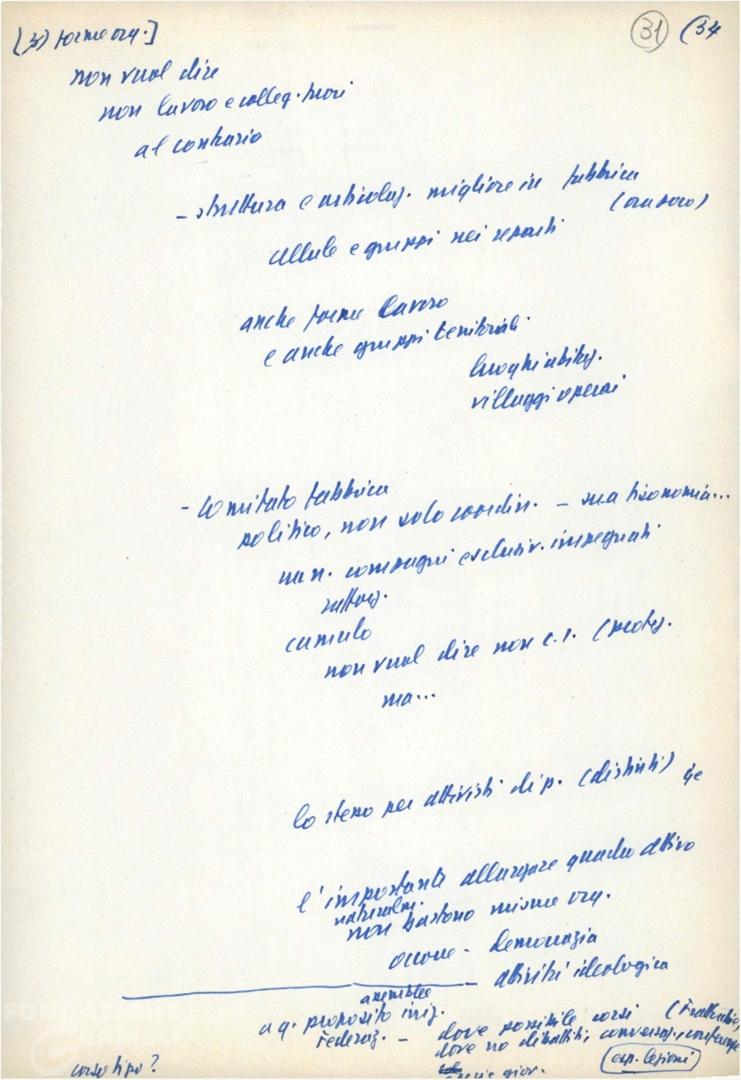 [3) forme org.] 31 (34
non vuol dire
non lavoro e colleg. fuori
al contrario
- struttura e articolaz. migliore in fabbrica
(ora poco)
cellule e gruppi nei reparti
anche forme lavoro
e anche gruppi territoriali
luoghi abitaz.
villaggi operai
- Comitato fabbrica
politico, non solo coordin. - sua fisonomia...
compagni esclusiv. impegnati
cumulo
non vuol dire non c.i.
ma...
lo stesso per attivisti di p. (distinti)
l'importante allargare quadro attivo
naturalm.
non bastono misure org.
occorre - democrazia
- attività ideologica
assemblee
a q. proposito iniz.
Federaz. - dove possibile corsi
dove no dibattiti, conversaz., conferenze
(esp. lezioni)
corso tipo?